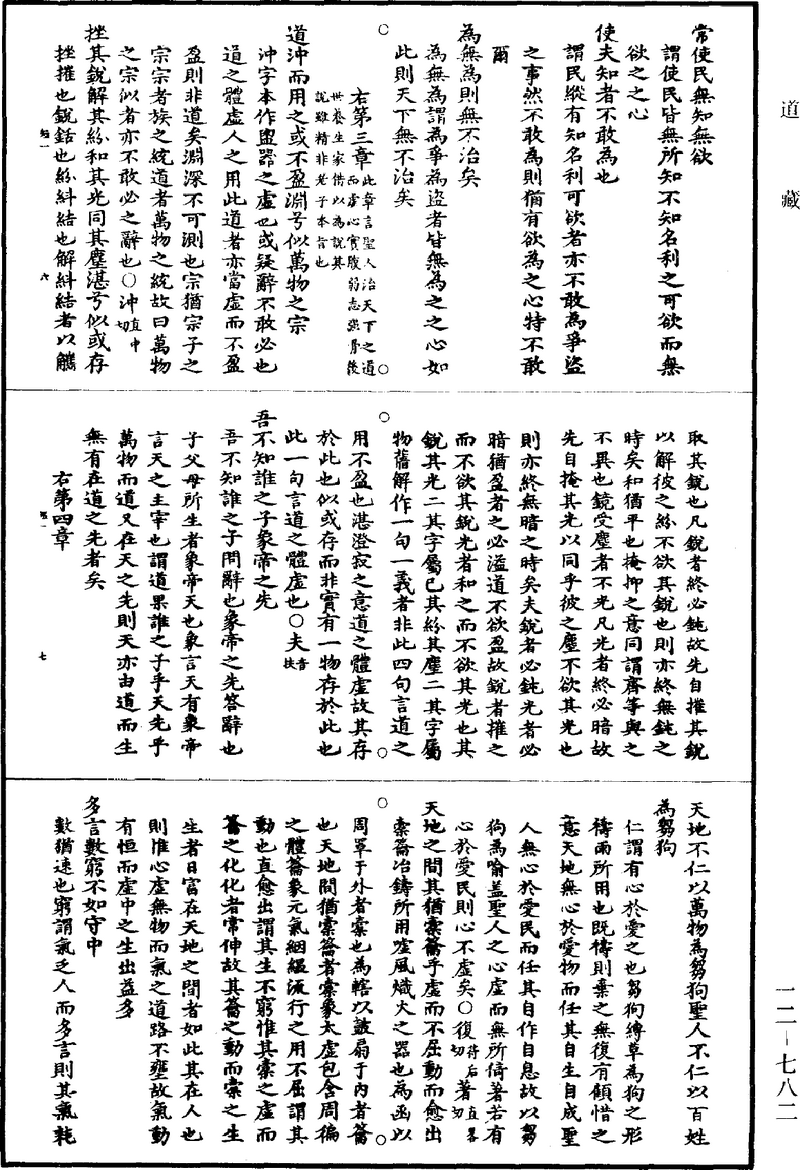 道藏
常使民無知無欲
謂使民皆無所知不知名利之可欲而無
欲之之心
使夫知者不敢為也
謂民縱有知名利可欲者亦不敢為爭盜
之事然不敢為則猶有欲為之心特不敢
爾
為無為則無不治矣
為無為謂為爭為盜者皆無為之之心如
此則天下無不治矣
右第三章此章言聖人治天下之道而虛心實腹弱志強骨後
世養生家借以為說其說雖精非老子本旨也
道沖而用之或不盈淵兮似萬物之宗
沖字本作盅器之虛也或疑辭不敢必也
道之體虛人之用此道者亦當虛而不盈
盈則非道矣淵深不可測也宗猶宗子之
宗宗者族之統道者萬物之統故曰萬物
之宗似者亦不敢必之辭也○沖直中切
挫其銳解其紛和其光同其塵湛兮似或存
挫摧也銳銛也紛糾結也解糾結者以觿
六
取其銳也凡銳者終必鈍故先自摧其銳
以解彼之紛不欲其銳也則亦終無鈍之
時矣和猶平也掩抑之意同謂齊等與之
不異也鏡受塵者不光凡光者終必暗故
先自掩其光以同乎彼之塵不欲其光也
則亦終無暗之時矣夫銳者必鈍光者必
暗猶盈者之必溢道不欲盈故銳者摧之
而不欲其銳光者和之而不欲其光也其
銳其光二其字屬己其紛其塵二其字屬
物舊解作一句一義者非此四句言道之
用不盈也湛澄寂之意道之體虛故其存
於此也似或存而非實有一物存於此也
此一句言道之體虛也○夫音扶
吾不知誰之子象帝之先
吾不知誰之子問辭也象帝之先答辭也
子父母所生者象帝天也象言天有象帝
言天之主宰也謂道果誰之子乎天先乎
萬物而道又在天之先則天亦由道而生
無有在道之先者矣
右第四章
七
天地不仁以萬物為芻狗聖人不仁以百姓
為芻狗
仁謂有心於愛之也芻狗縛草為狗之形
禱雨所用也既禱則棄之無復有顧惜之
意天地無心於愛物而任其自生自成聖
人無心於愛民而任其自作自息故以芻
狗為喻蓋聖人之心虛而無所倚著若有
心於愛民則心不虛矣○復符后切著直畧切
天地之間其猶橐籥乎虛而不屈動而愈出
橐籥冶鑄所用噓風熾火之器也為函以
周罩于外者橐也為轄以鼓扇于內者籥
也天地間猶橐籥者橐象太虛包含周徧
之體籥象元氣絪縕流行之用不屈謂其
動也直愈出謂其生不窮惟其橐之虛而
籥之化化者常伸故其籥之動而橐之生
生者日富在天地之間者如此其在人也
則惟心虛無物而氣之道路不壅故氣動
有恒而虛中之生出益多
多言數窮不如守中
數猶速也窮謂氣乏人而多言則其氣耗
一二—七八二